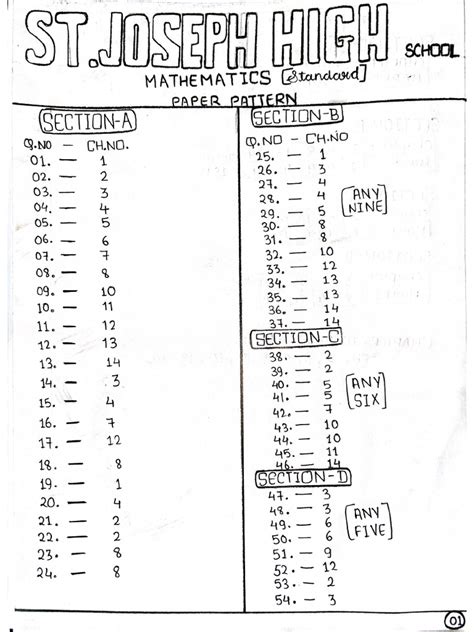 ST. JOSEPH HIGH SCHOOL
MATHEMATICS [Standard]
PAPER PATTERN
SECTION-A
Q.NO - CH.NO.
01. — 1
02. — 2
03. — 3
04. — 4
05. — 5
06. — 6
07. — 7
08. — 8
09. — 10
10. — 11
11. — 12
12. — 13
13. — 14
14. — 3
15. — 4
16. — 7
17. — 12
18. — 8
19. — 1
20. — 4
21. — 2
22. — 2
23. — 8
24. — 8
SECTION-B
Q.NO - CH.NO
25. — 1
26. — 3
27. — 4
28. — 4
29. — 5
30. — 8
31. — 8
32. — 10
33. — 12
34. — 13
35. — 13
36. — 14
37. — 14
[ANY
NINE]
SECTION-C
38. — 2
39. — 2
40. — 5
41. — 5
42. — 7
43. — 10
44. — 10
45. — 11
46. — 14
[ANY
SIX]
SECTION-D
47. — 3
48. — 3
49. — 6
50. — 6
51. — 9
52. — 12
53. — 2
54. — 3
[ANY
FIVE]
01